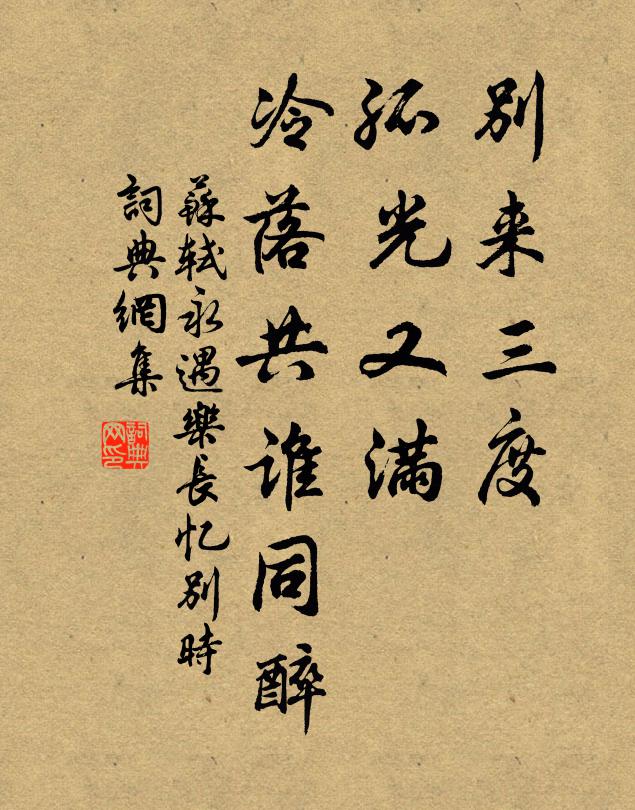 别来三度
孤光又满
冷落共谁同醉
蘇軾永遇樂長忆别時
詞典網集
詞典
网印